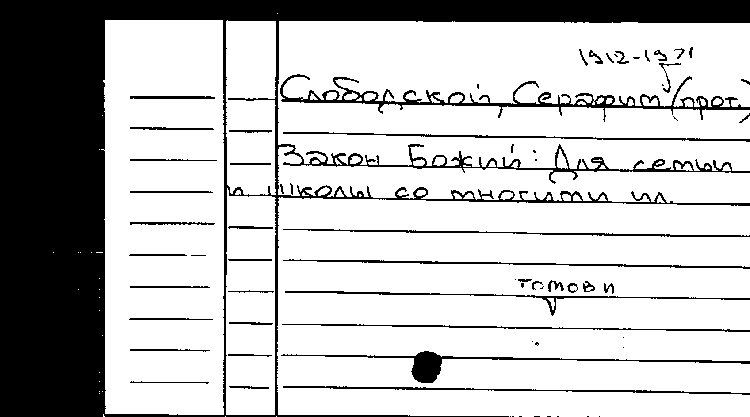 1912-1971
Слободской, Серафим (прот.)
Закон Божий: Для семьи
и школы со многими ил.
томови